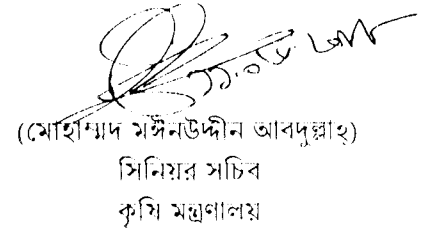 (মোহাম্মাদ মঈনউদ্দীন আবদুল্লাহ্)
সিনিয়র সচিব
কৃষি মন্ত্রণালয়